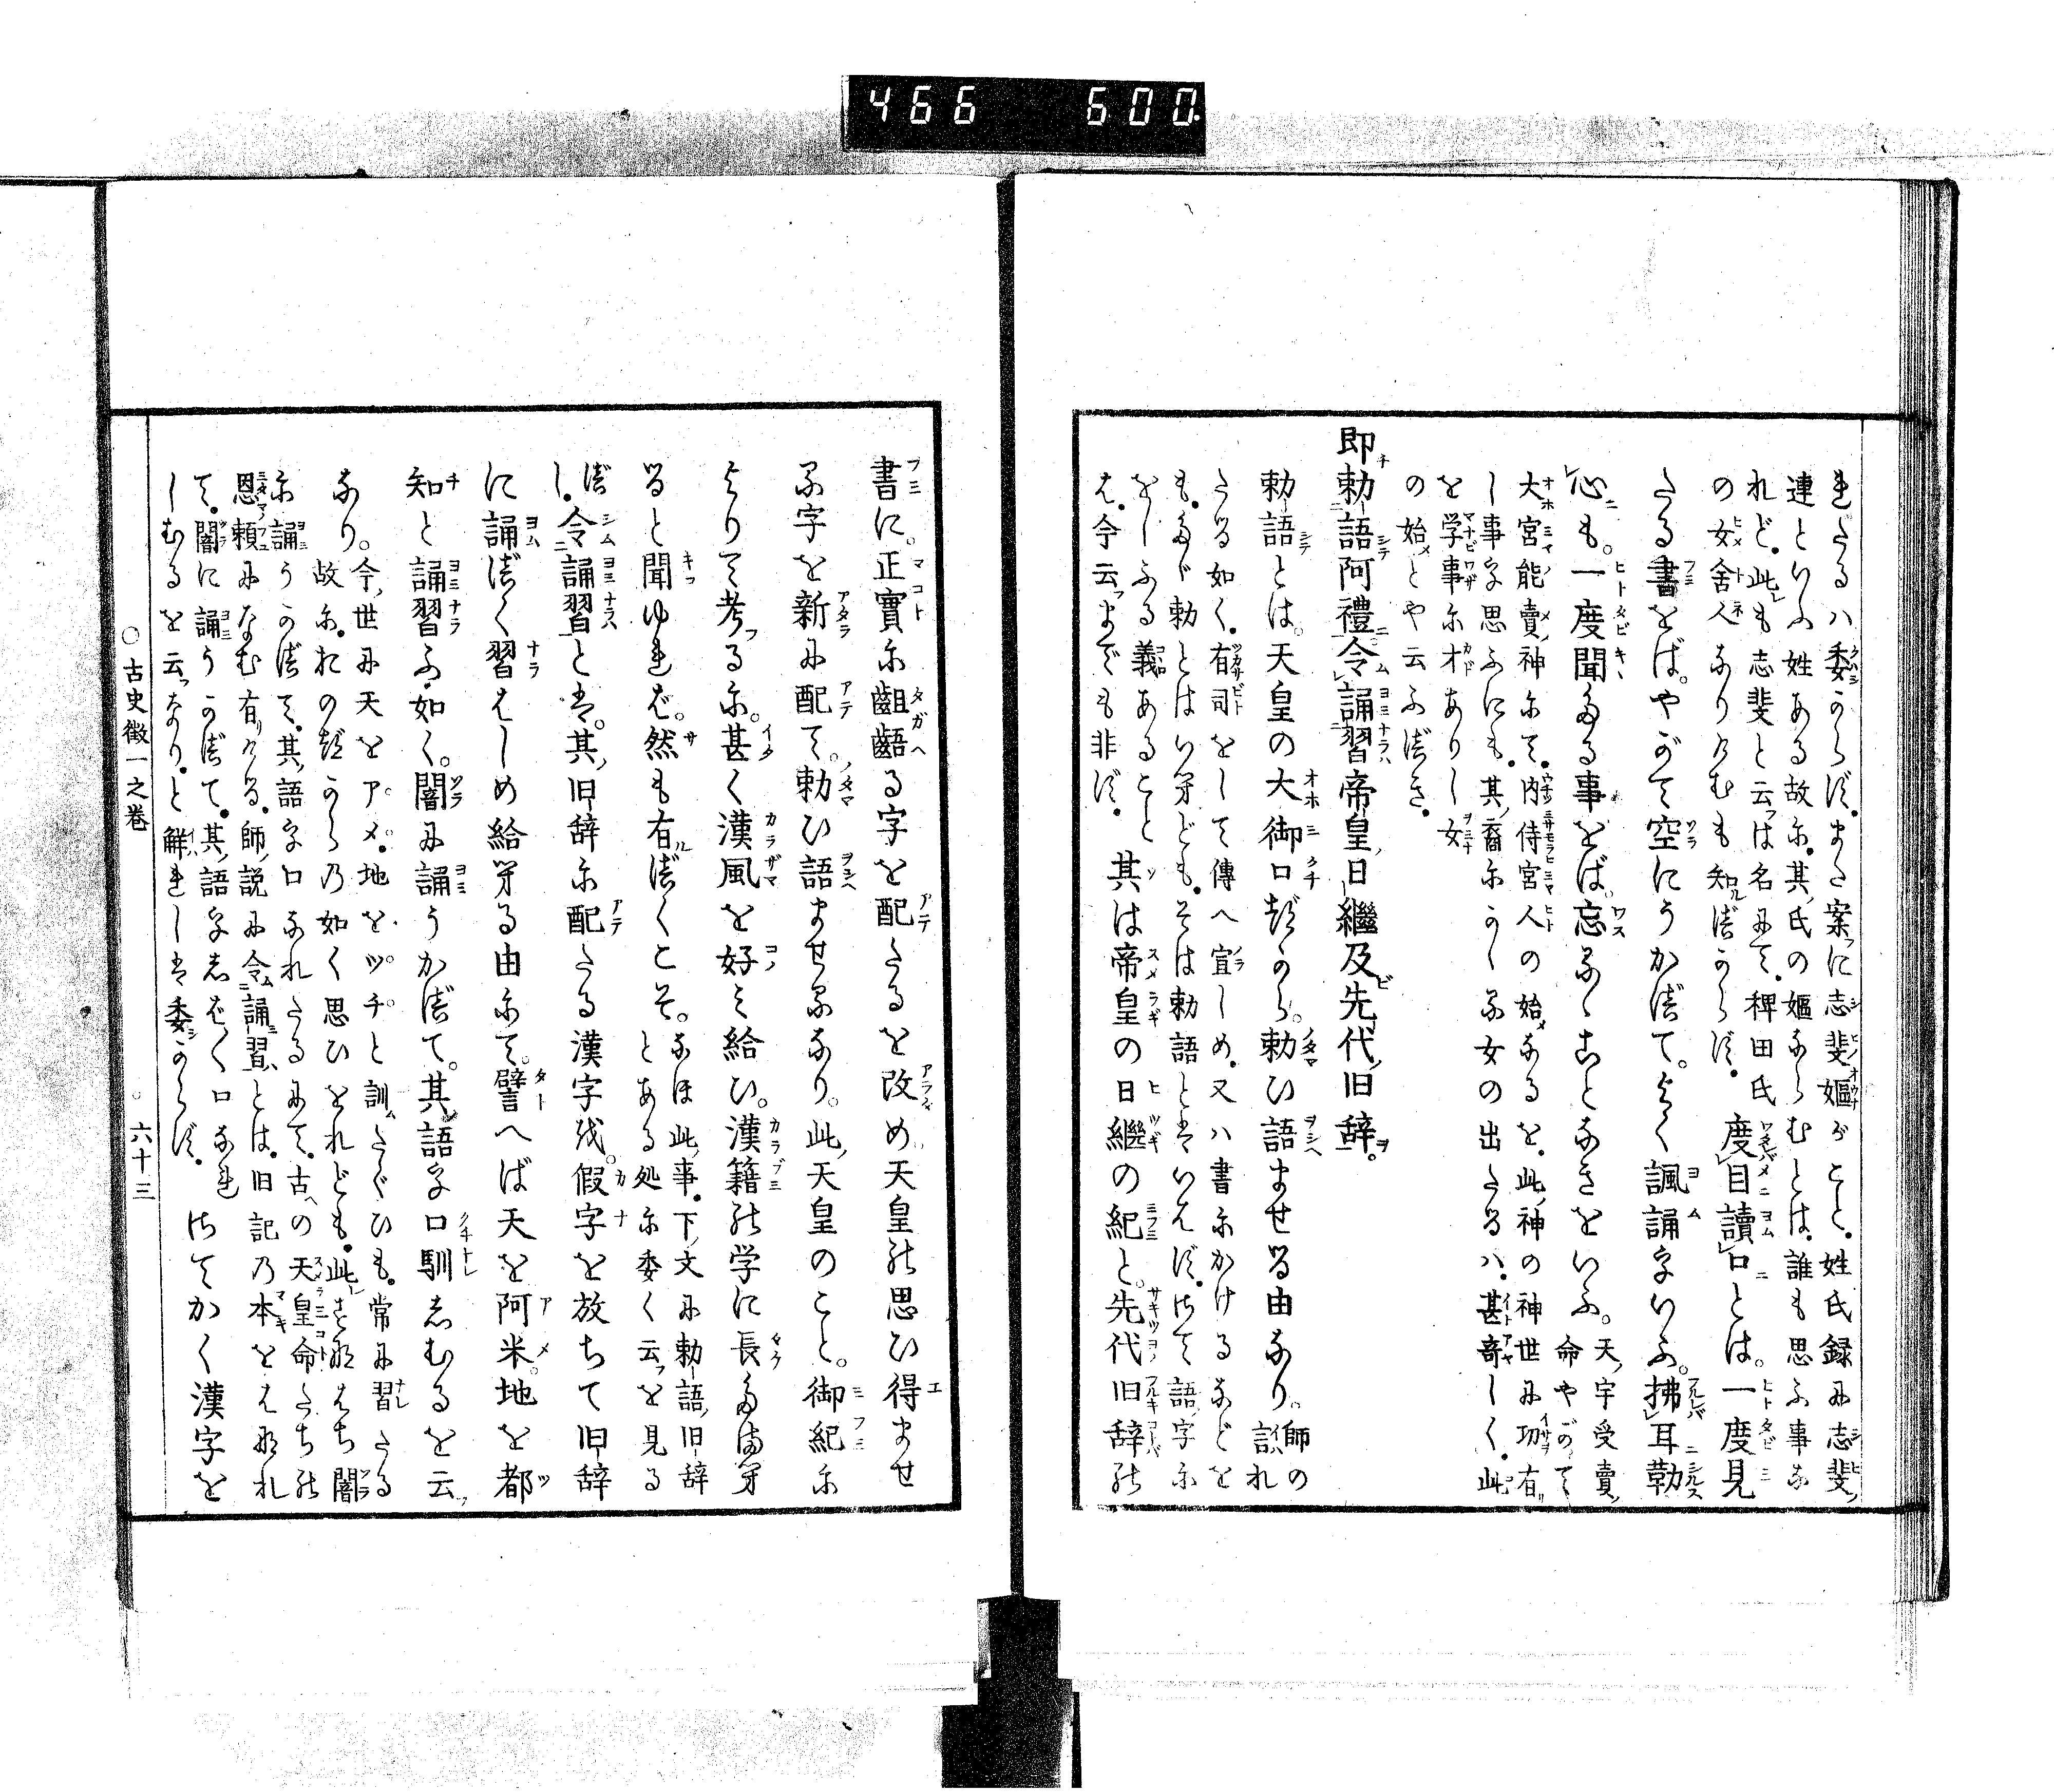 466 600
れたるハ委からず。また案に志斐嫗がこと。姓氏録に志斐
連といふ姓ある故に。其氏の嫗ならむとは。誰も思ふ事な
れど。此も志斐と云は名にて。稗田氏
の女舎人なりけむも知べからず。
度目讀口とは。一度見
たる書をば。やがて空にうかべて。よく諷誦をいふ。拂耳勒
心も。一度聞たる事をば。忘るゝことなきをいふ。
天宇受賣
命やがて
大宮能賣神にて。内侍宮人の始なるを。此神の神世に功有
し事を思ふにも。其裔にかゝる女の出たるハ。甚奇しく。此
を学事に才ありし女
の始とや云ふべき。
即勅語阿禮令誦習帝皇日繼及先代旧辞。
勅語とは。天皇の大御口づから。勅ひ語ませる由なり。
師の
言れ
たる如く。有司をして傳へ宣しめ。又ハ書にかけるなどを
も。たゞ勅とはいへども。そは勅語とはいはず。さて語字に
をしふる義あること
は。今云までも非ず。
其は帝皇の日繼の紀と。先代旧辞の
書に。正實に齟齬る字を配たるを改め天皇の思ひ得ませ
る字を新に配て。勅ひ語ませるなり。此天皇のこと。御紀に
よりて考るに。甚く漢風を好み給ひ。漢籍の学に長たまへ
ると聞ゆれば。然も有べくこそ。
なほ此事。下文に勅語旧辞
とある処に委く云を見る
べし。
令誦習とは。其旧辞に配たる漢字の。假字を放ちて旧辞
に誦べく習はしめ給へる由にて。譬へば天を阿米。地を都
知と誦習ふ如く。闇に誦うかべて。其語を口馴しむるを云
なり。
今世に天をアメ。地をツチと訓たぐひも。常に習たる
故に。おのづからの如く思ひをれども。此すなはち闇
に誦うかべて。其語を口なれたるにて。古の天皇命たちの
恩頼になむ有ける。師説に令誦習とは。旧記の本をはなれ
て。闇に誦うかべて。其語をしばしば口なれ
しむるを云なり。と解れしは委からず。
さてかく漢字を
○古史徴一之巻
○六十三